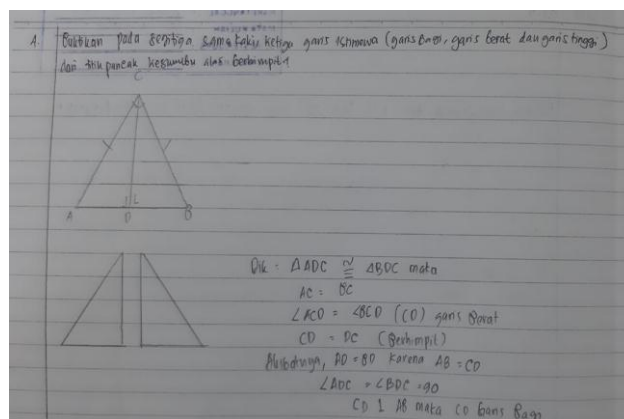 A. Buktikan pada segitiga samakaki, ketiga garis istimewa (garis bagi, garis berat dan garis tinggi)
dari titik puncak kesumbu alas berhimpit
C
A D B
Dik : △ADC ≅ △BDC maka
AC = BC
∠ACD = ∠BCD (CD) garis Barat
CD = DC (Berhimpit)
Akibatnya, AD = BD karena AB = CD
∠ADC = ∠BDC = 90
CD ⊥ AB maka CD Garis Bagi